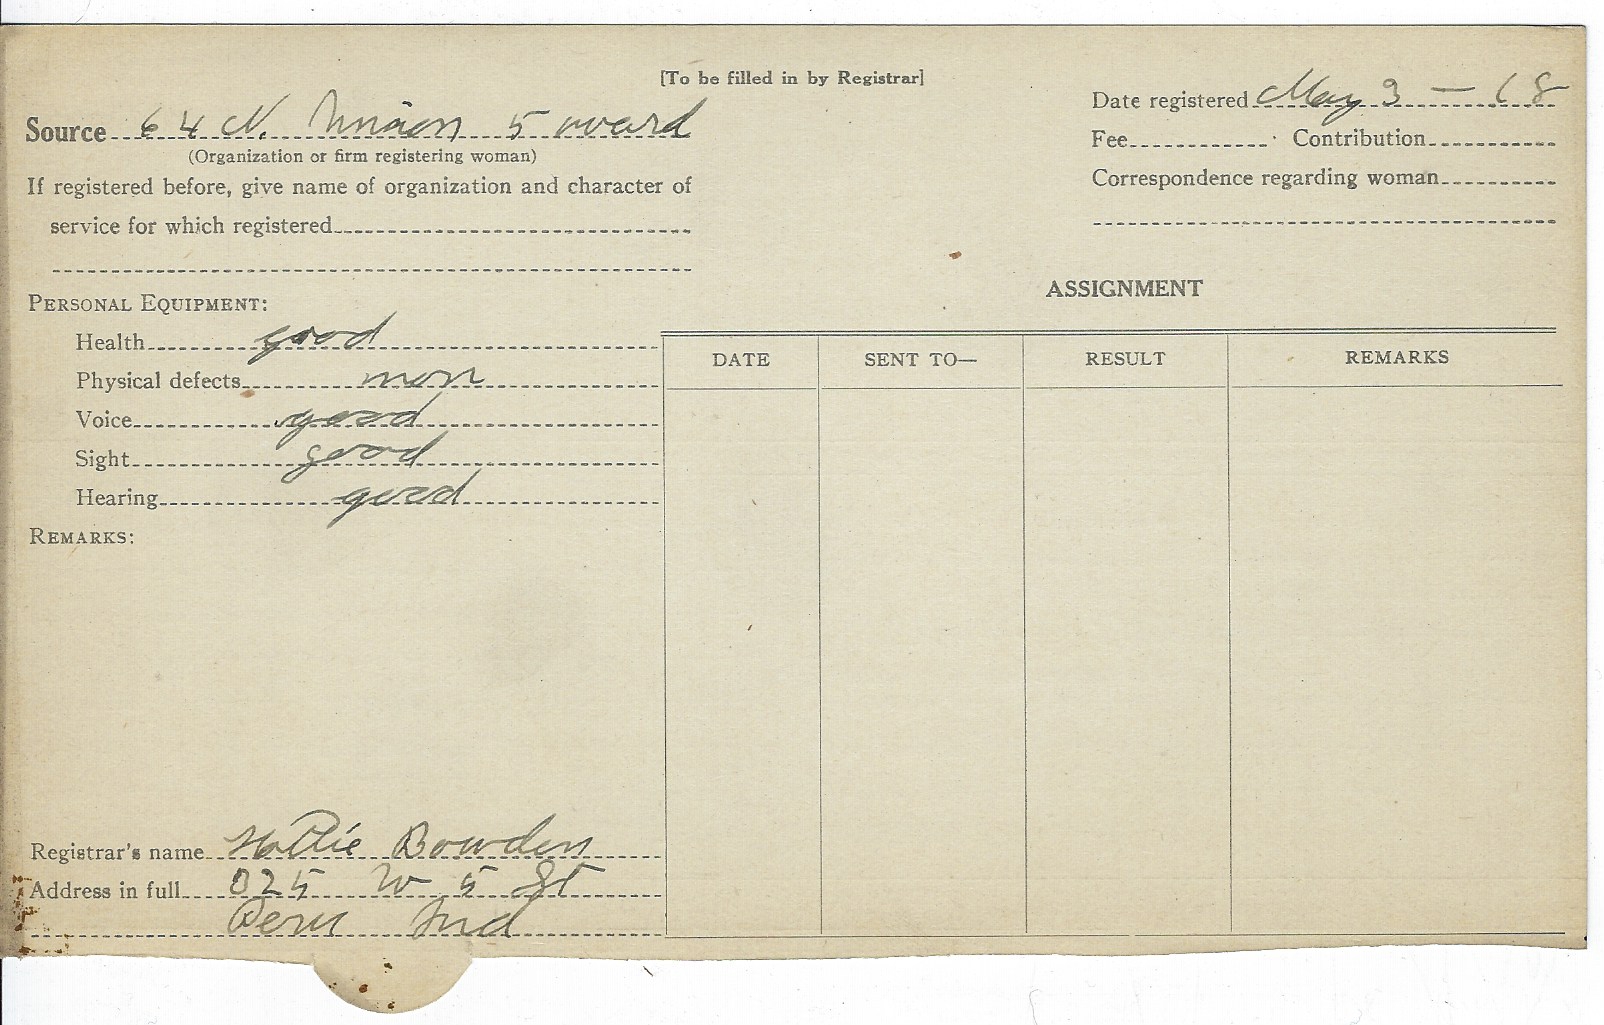 [To be filled in by Registrar]
Source 64 N. Union 5 ward
(Organization or firm registering woman)
If registered before, give name of organization and character of
service for which registered
Date registered May 3 — 18
Fee Contribution
Correspondence regarding woman
PERSONAL EQUIPMENT:
Health good
Physical defects non
Voice good
Sight good
Hearing good
REMARKS:
ASSIGNMENT
DATE SENT TO— RESULT REMARKS
Registrar's name Bowden
Address in full 325 W 5 St
Peru Ind